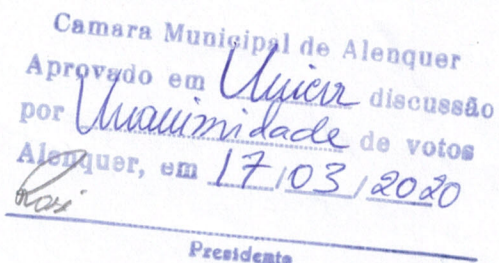 Camara Municipal de Alenquer
Aprovado em Unica discussão
por Unanimidade de votos
Alenquer, em 17/03/2020
Presidente